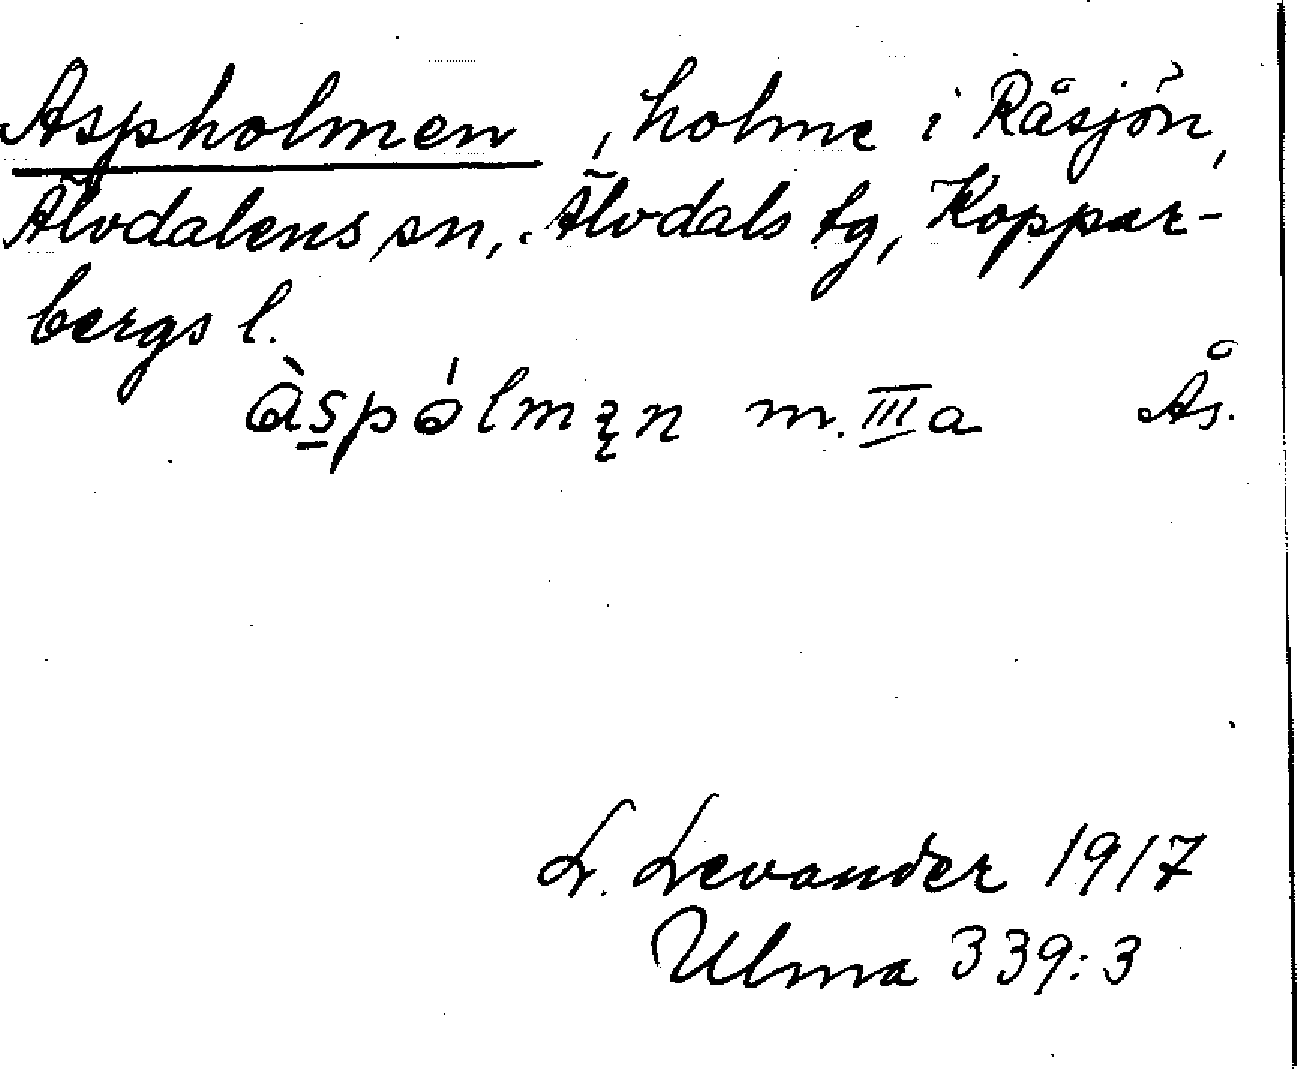 Aspholmen, holme i Råsjön,
Älvdalens sn, Älvdals tg, Koppar-
bergs l.
m. III a Ås.
L. Levander 1917
Ulma 339:3